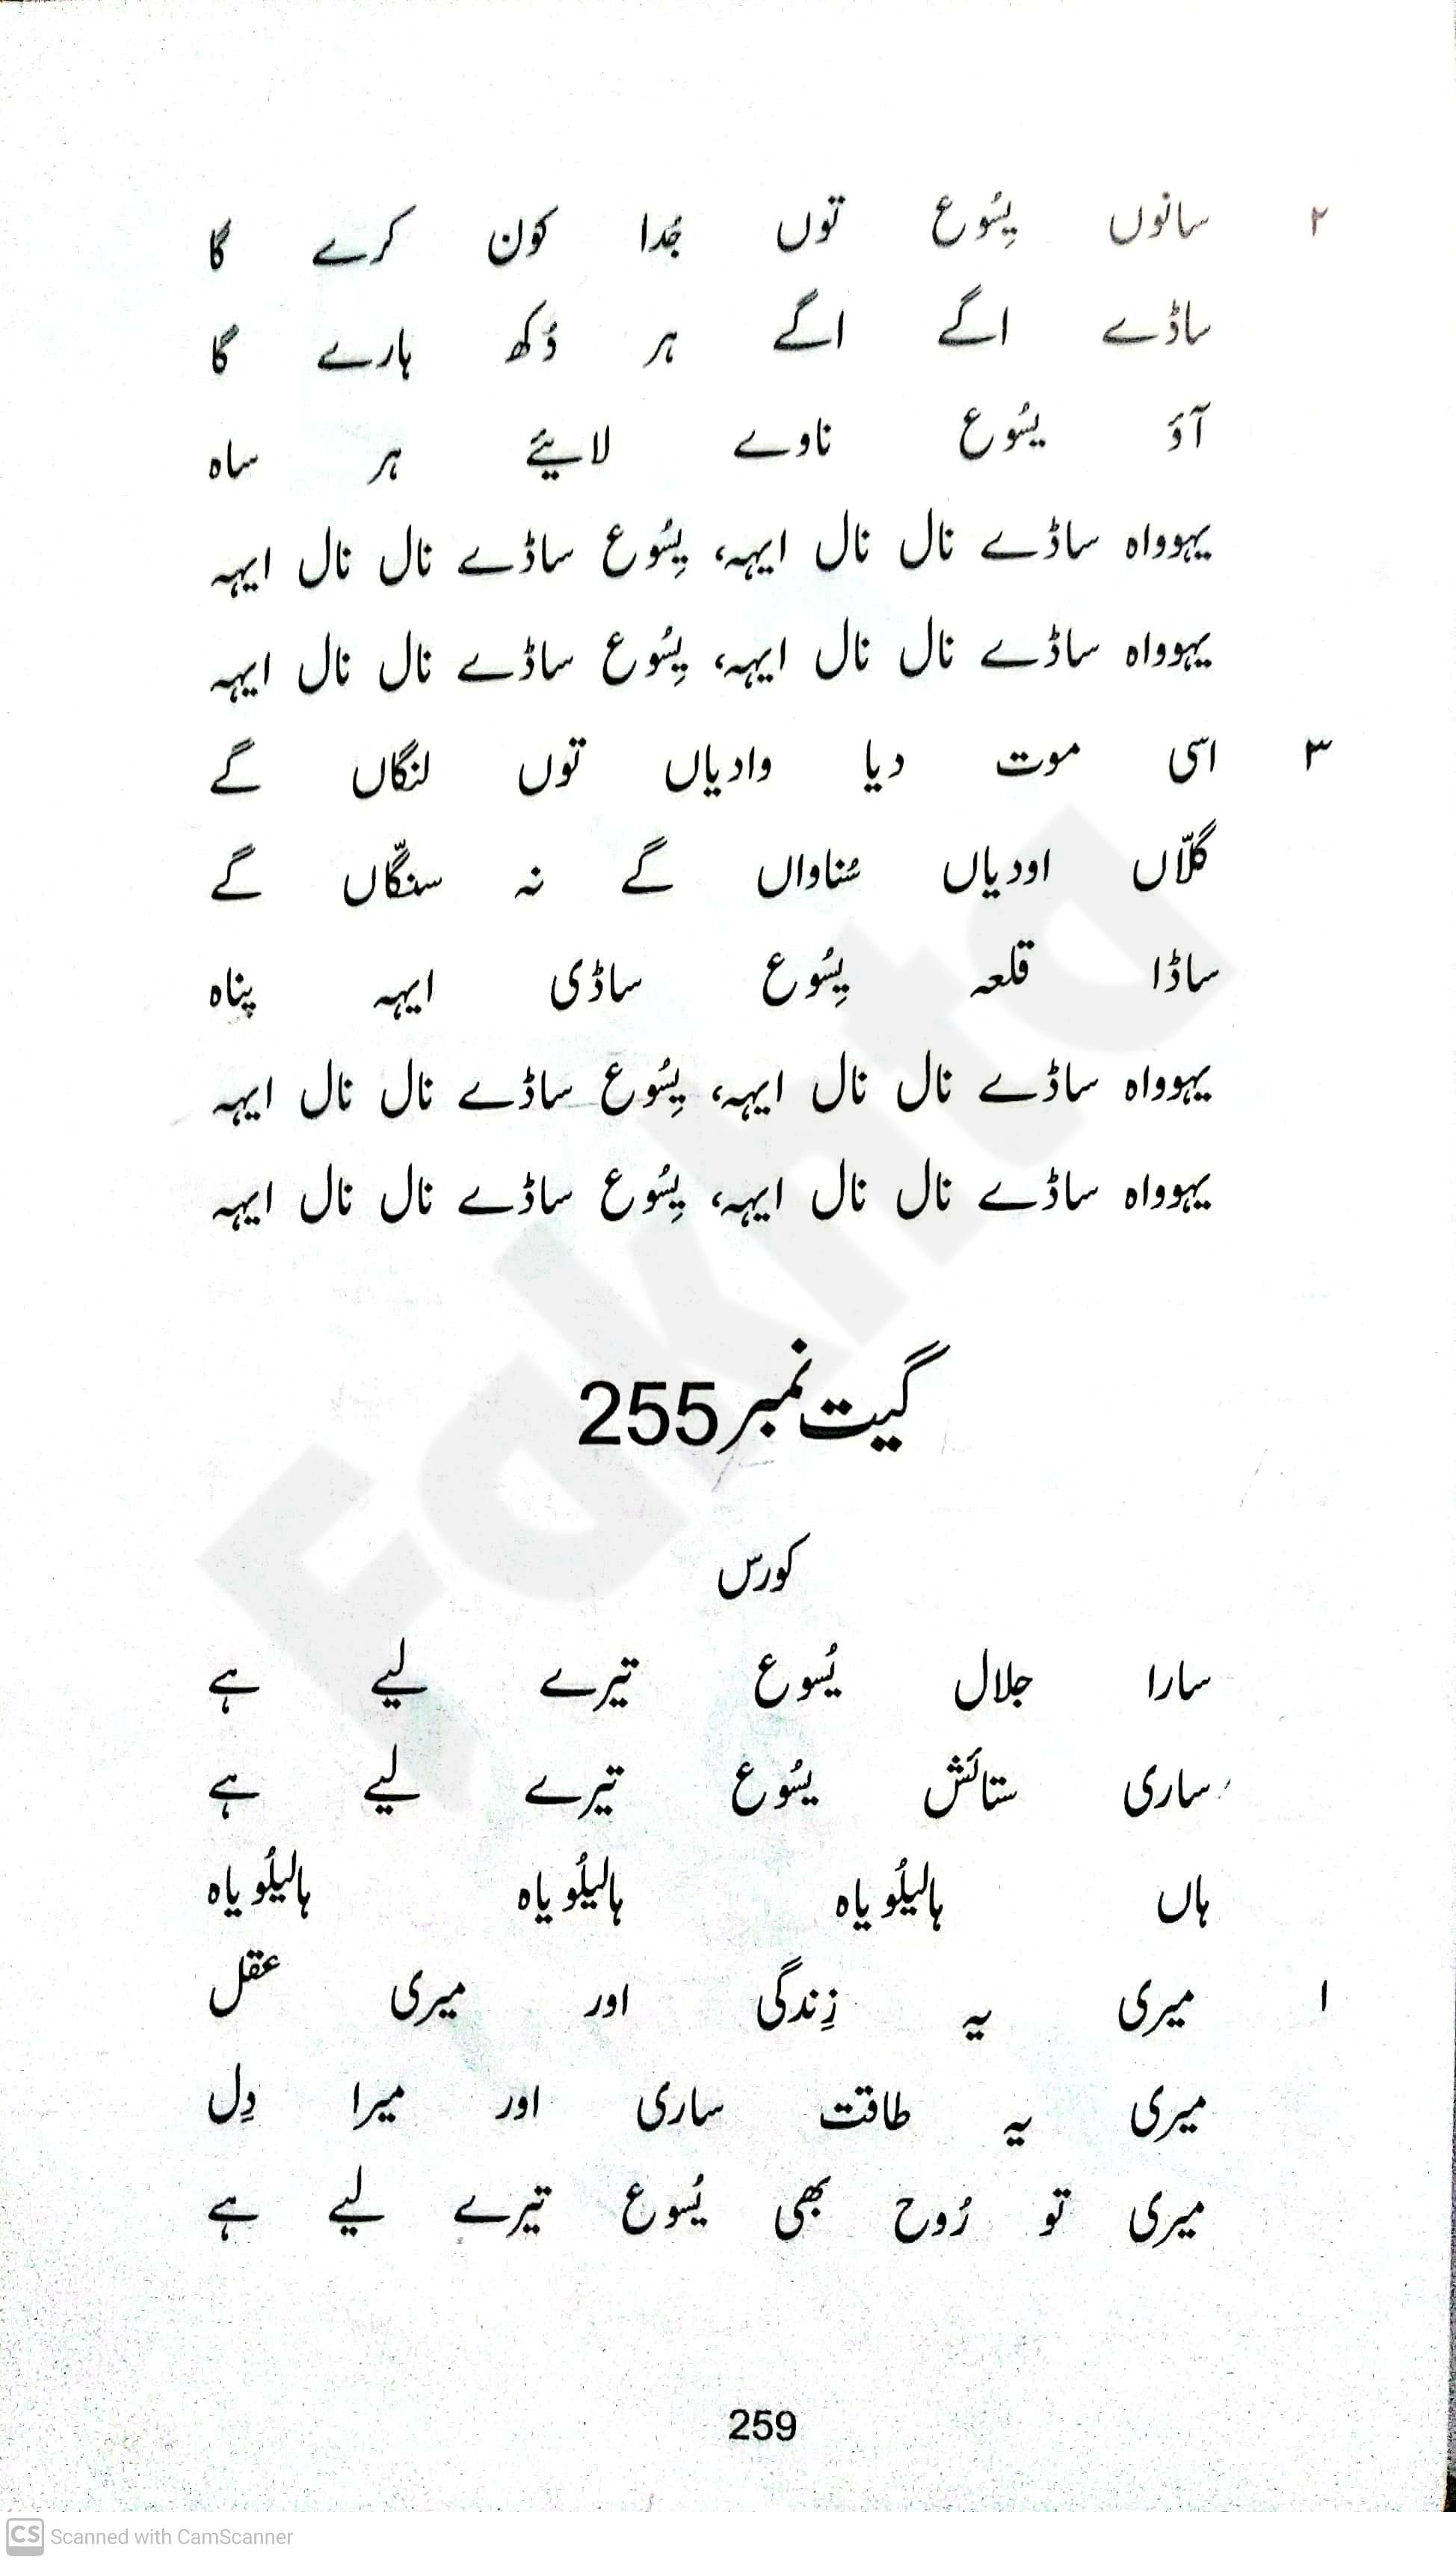 ۲ سانوں یِسُوع توں جُدا کون کرے گا
ساڈے اگے اگے ہر دُکھ ہارے گا
آؤ یسُوع ناوے لائیے ہر ساہ
یہوواہ ساڈے نال نال ایہہ، یِسُوع ساڈے نال نال ایہہ
یہوواہ ساڈے نال نال ایہہ، یِسُوع ساڈے نال نال ایہہ
۳ اسی موت دیا وادیاں توں لنگاں گے
گلّاں اودیاں سُناواں گے نہ سنگّاں گے
ساڈا قلعہ یِسُوع ساڈی ایہہ پناہ
یہوواہ ساڈے نال نال ایہہ، یِسُوع ساڈے نال نال ایہہ
یہوواہ ساڈے نال نال ایہہ، یِسُوع ساڈے نال نال ایہہ
گیت نمبر 255
کورس
سارا جلال یُسوع تیرے لیے ہے
ساری ستائش یسُوع تیرے لیے ہے
ہاں ہالیلُویاہ ہالیلُویاہ ہالیلُویاہ
۱ میری یہ زِندگی اور میری عقل
میری یہ طاقت ساری اور میرا دِل
میری تو رُوح بھی یُسوع تیرے لیے ہے
259
Fakhta
CS Scanned with CamScanner